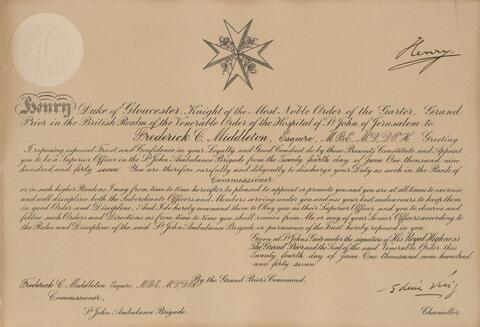 Henry.
Henry Duke of Gloucester, Knight of the Most Noble Order of the Garter, Grand
Prior in the British Realm of the Venerable Order of the Hospital of St John of Jerusalem to
Frederick C. Middleton, Esquire, M.B.E., M.D., D.P.H. Greeting
I reposing especial Trust and Confidence in your Loyalty and Good Conduct do by these Presents Constitute and Appoint
you to be a Superior Officer in the St John Ambulance Brigade from the Twenty fourth day of June One thousand nine
hundred and forty seven You are therefore carefully and diligently to discharge your Duty as such in the Rank of
Commissioner
or in such higher Rank as I may from time to time hereafter be pleased to appoint or promote you and you are at all times to exercise
and well discipline both the Subordinate Officers and Members serving under you and use your best endeavours to keep them
in good Order and Discipline. And I do hereby command them to Obey you as their Superior Officer and you to observe and
follow such Orders and Directions as from time to time you shall receive from Me or any of your Senior Officers according to
the Rules and Discipline of the said St John Ambulance Brigade in pursuance of the Trust hereby reposed in you
Given at St Johns Gate under the signature of His Royal Highness
The Grand Prior and the Seal of the said Venerable Order this
Twenty fourth day of June One thousand nine hundred
and forty seven
By the Grand Prior's Command.
Frederick C. Middleton, Esquire, M.B.E., M.D., D.P.H.
Commissioner,
St John Ambulance Brigade.
Chancellor.